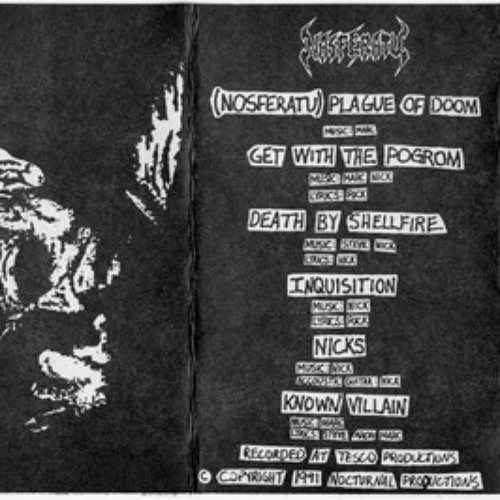 NOSFERATU
(NOSFERATU) PLAGUE OF DOOM
MUSIC: MARC
GET WITH THE POGROM
MUSIC: MARC NICK
LYRICS:
DEATH BY SHELLFIRE
MUSIC: STEVE NICK
LYRICS: NICK
INQUISITION
MUSIC: NICK
LYRICS:
NICKS
MUSIC: NICK
ACCOUSTIC GUITAR: NICK
KNOWN VILLAIN
MUSIC: MARC
LYRICS: STEVE MARC
RECORDED AT TESCO PRODUCTIONS
© COPYRIGHT 1991 NOCTURNAL PRODUCTIONS